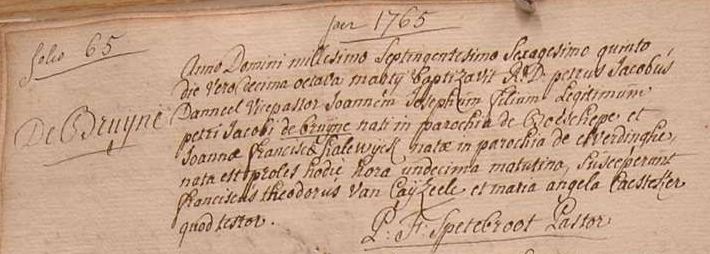 per 1765
folio 65
De Bruyne
Anno Domini millesimo Septingentesimo Sexagesimo quinto
die vero decima octava martij baptizavit R.D. petrus Jacobus
Danneel Vicepastor Joannem Josephum filium Legitimum
petri Jacobi de bruyne nati in parochia de Boeschepe et
Joannæ franciscæ halewyck natæ in parochia de elverdinghe,
nata est proles hodie hora undecima matutina, Susceperunt
franciscus theodorus Van Cayzeele et maria angela Caesteker
quod testor.
P: F: Spetebroot Pastor